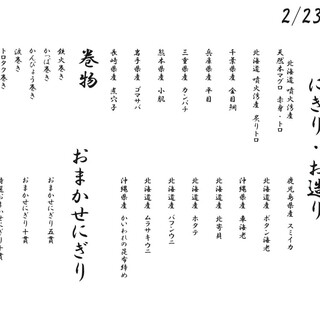 2/23
にぎり・お造り
北海道 噴火湾産
天然本マグロ 赤身・トロ
北海道 噴火湾産 炙りトロ
千葉県産 金目鯛
兵庫県産 平目
三重県産 カンパチ
熊本県産 小肌
岩手県産 ゴマサバ
長崎県産 煮穴子
鹿児島県産 スミイカ
北海道産 ボタン海老
沖縄県産 車海老
北海道産 北寄貝
北海道産 ホタテ
北海道産 バフンウニ
北海道産 ムラサキウニ
沖縄県産 かいわれの昆布締め
巻物
鉄火巻き
かっぱ巻き
かんぴょう巻き
トロタク巻き
おまかせにぎり
おまかせにぎり五貫
おまかせにぎり十貫